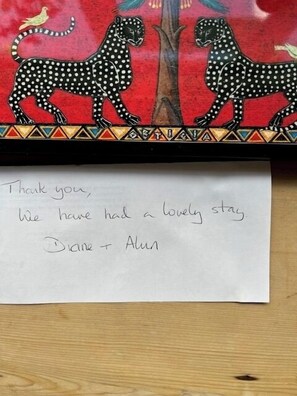 Thank you,
We have had a lovely stay
Diane + Alun